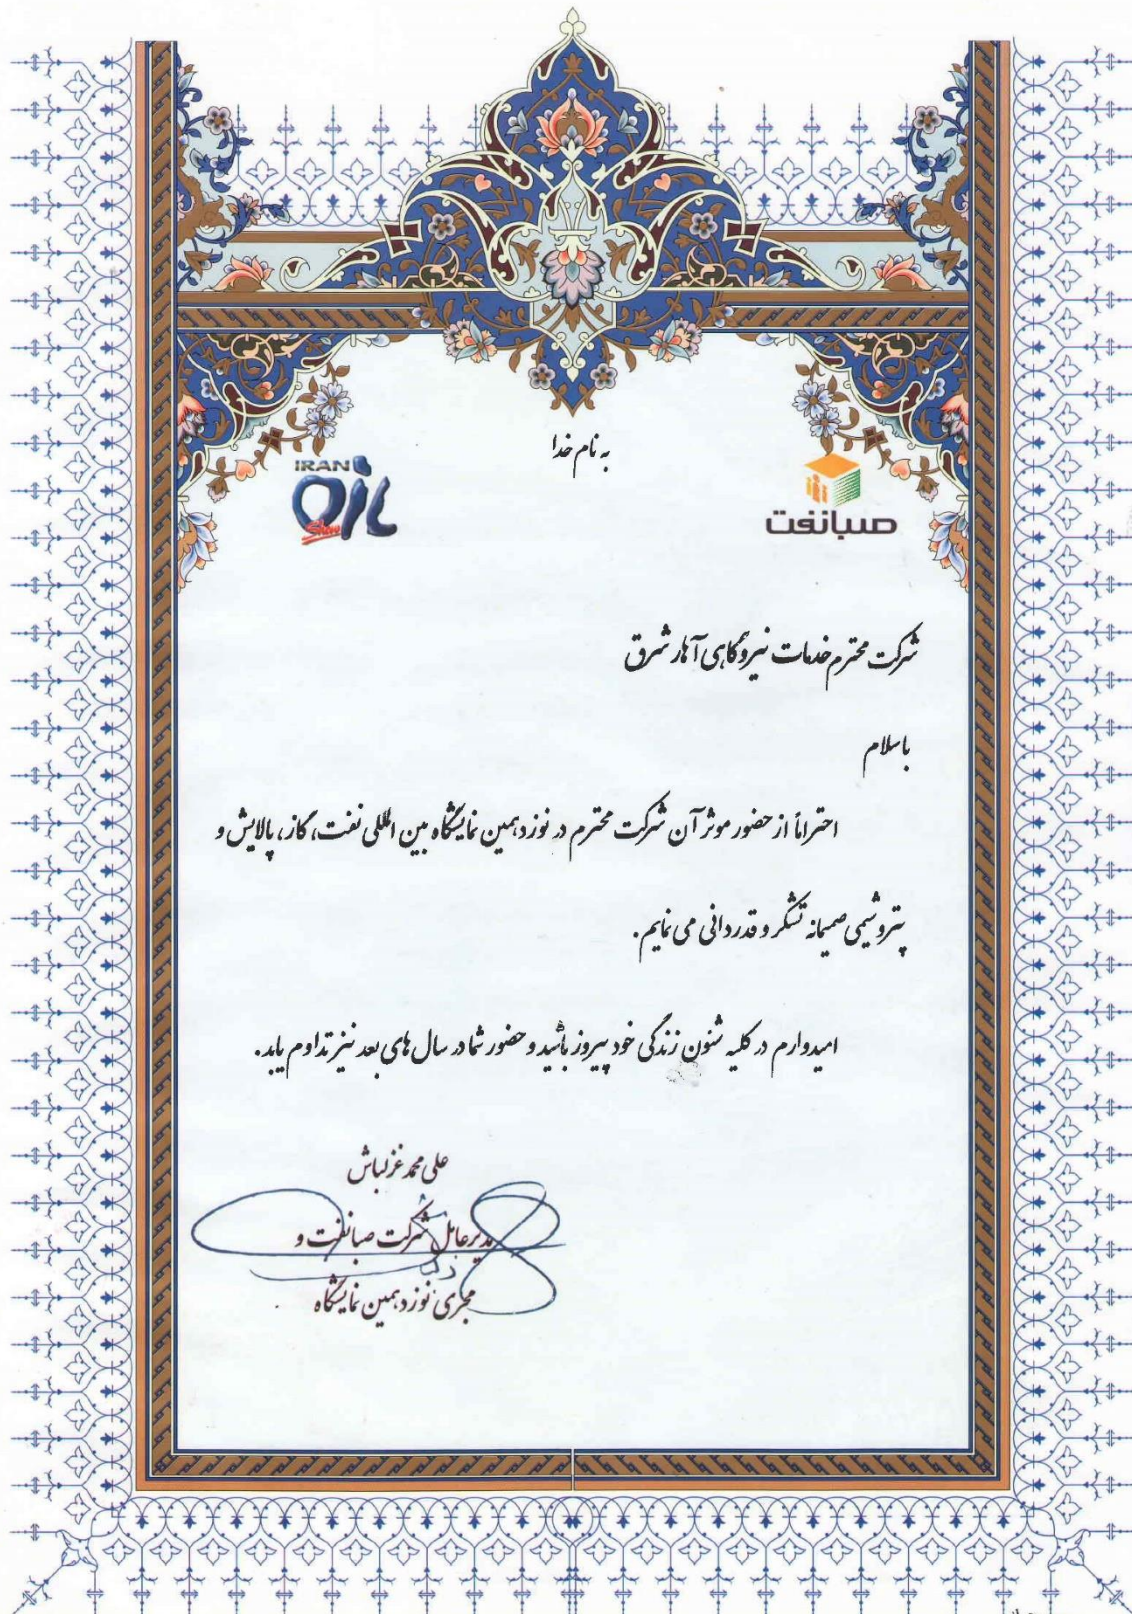 به نام خدا
IRAN
OIL
Show
صبانفت
شرکت محترم خدمات نیروگاهی آهار شرق
باسلام
احتراماً از حضور موثر آن شرکت محترم در نوزدهمین نمایشگاه بین المللی نفت، گاز، پالایش و
پتروشیمی صمیمانه تشکر و قدردانی می نمایم.
امیدوارم در کلیه شئون زندگی خود پیروز باشید و حضور شما در سال های بعد نیز تداوم یابد.
علی محمد غزلباش
مدیرعامل شرکت صبانفت و
مجری نوزدهمین نمایشگاه